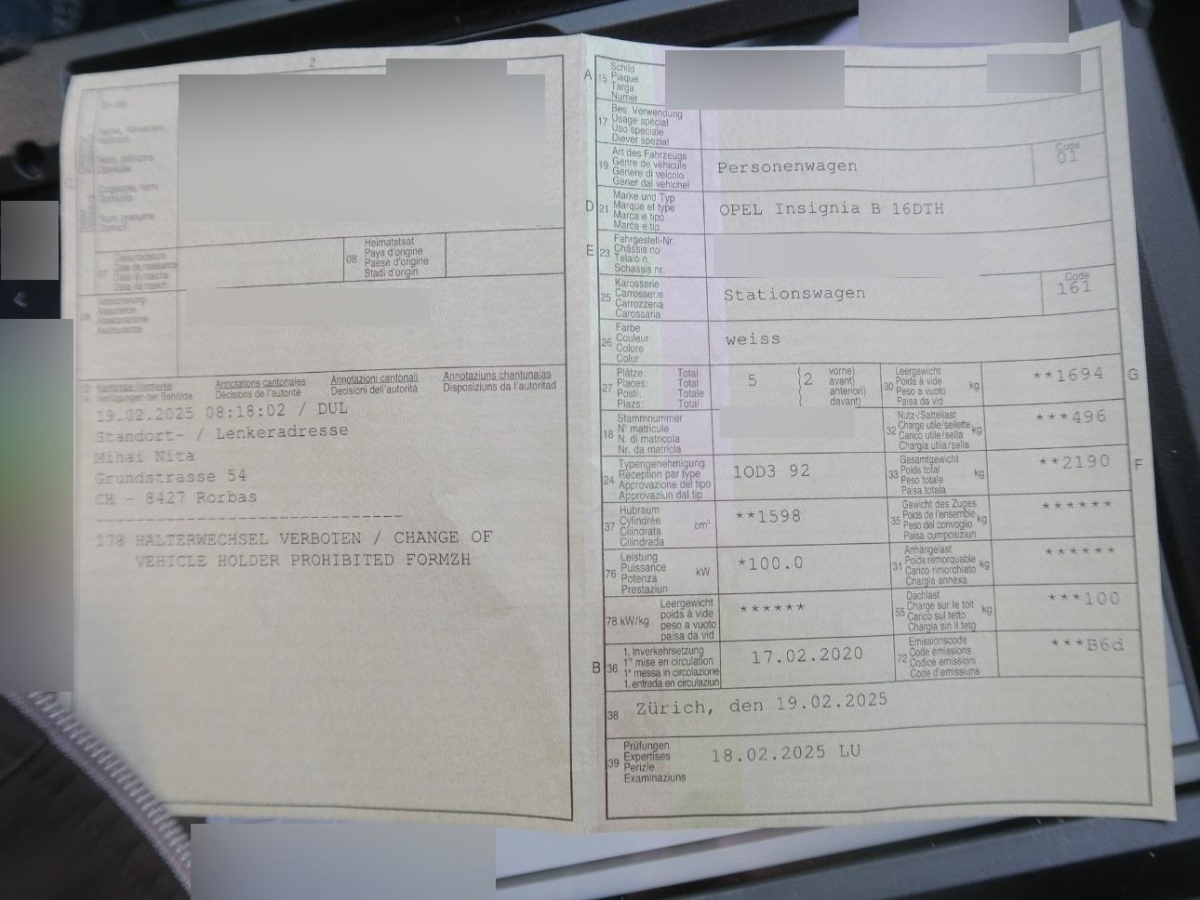 2
Heimatstaat
08 Pays d'origine
Paese d'origine
Stadi d'origin
Annotations cantonales Annotazioni cantonali Annotaziuns chantunalas
Décisions de l'autorité Decisioni dell'autorità Disposiziuns da l'autoritad
19.02.2025 08:18:02 / DUL
Standort- / Lenkeradresse
Mihai Nita
Grundstrasse 54
CH - 8427 Rorbas
--------------------------------
178 HALTERWECHSEL VERBOTEN / CHANGE OF
VEHICLE HOLDER PROHIBITED FORMZH
A 15 Schild
Plaque
Targa
Numer
17 Bes. Verwendung
Usage spécial
Uso speciale
Diever spezial
19 Art des Fahrzeugs
Genre de véhicule
Genere di veicolo
Gener dal vehichel
Personenwagen
Code
01
D 21 Marke und Typ
Marque et type
Marca e tipo
Marca e tip
OPEL Insignia B 16DTH
E 23 Fahrgestell-Nr.
Châssis no
Telaio n.
Schassis nr.
25 Karosserie
Carrosserie
Carrozzeria
Carossaria
Stationswagen
Code
161
26 Farbe
Couleur
Colore
Colur
weiss
27 Plätze: Total
Places: Total
Posti: Totale
Plazs: Total
5 (2 vorne)
avant)
anteriori)
davant)
30 Leergewicht
Poids à vide kg
Peso a vuoto
Paisa da vid
**1694 G
18 Stammnummer
N° matricule
N. di matricola
Nr. da matricla
32 Nutz-/Sattellast
Charge utile/sellette kg
Carico utile/sella
Chargia utila/sella
***496
24 Typengenehmigung
Réception par type
Approvazione del tipo
Approvaziun dal tip
1OD3 92
33 Gesamtgewicht
Poids total kg
Peso totale
Paisa totala
**2190 F
37 Hubraum
Cylindrée cm³
Cilindrata
Cilindrada
**1598
35 Gewicht des Zuges
Poids de l'ensemble kg
Peso del convoglio
Paisa cumposiziun
******
76 Leistung
Puissance kW
Potenza
Prestaziun
*100.0
31 Anhängelast
Poids remorquable kg
Carico rimorchiato
Chargia annexa
******
78 kW/kg Leergewicht
poids à vide
peso a vuoto
paisa da vid
******
55 Dachlast
Charge sur le toit kg
Carico sul tetto
Chargia sin il tetg
***100
B 36 1. Inverkehrsetzung
1re mise en circulation
1a messa in circolazione
1. entrada en circulaziun
17.02.2020
72 Emissionscode
Code émissions
Codice emissioni
Code d'emissiuns
***B6d
38 Zürich, den 19.02.2025
39 Prüfungen
Expertises
Perizie
Examinaziuns
18.02.2025 LU